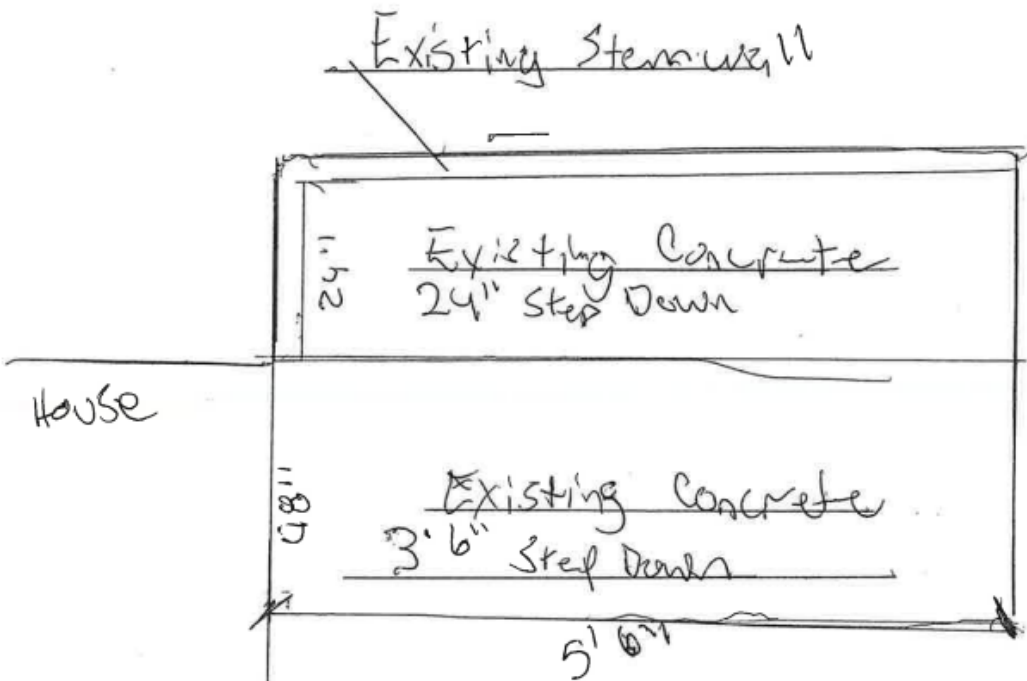 Existing Stemwall
24"
Existing Concrete
24" Step Down
House
48"
Existing Concrete
3' 6" Step Down
5' 6"